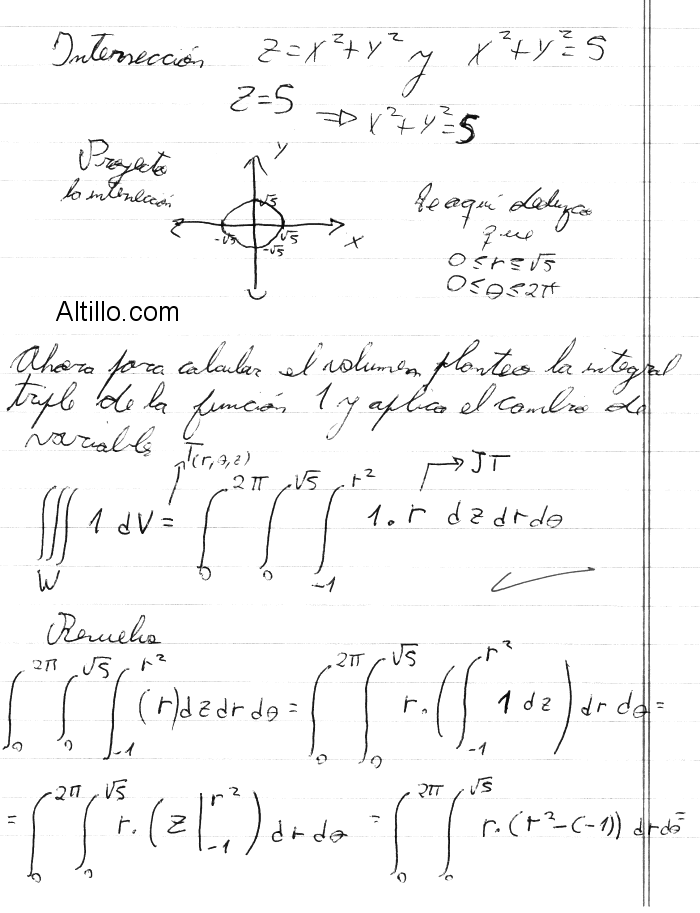 Intersección z=x²+y² y x²+y²=5
z=5 ⇒ x²+y²=5
Proyecto
la intersección
y
√5
-√5 √5
-√5
x
De aquí deduzco
que
0≤r≤√5
0≤θ≤2π
Altillo.com
Ahora para calcular el volumen planteo la integral
triple de la función 1 y aplico el cambio de
variable T(r,θ,z)
∭_W 1 dV = ∫_0^{2π} ∫_0^{√5} ∫_{-1}^{r²} 1. r dz dr dθ
→ JT
Resuelvo
∫_0^{2π} ∫_0^{√5} ∫_{-1}^{r²} (r) dz dr dθ = ∫_0^{2π} ∫_0^{√5} r. (∫_{-1}^{r²} 1 dz) dr dθ =
= ∫_0^{2π} ∫_0^{√5} r. (z |_{-1}^{r²}) dr dθ = ∫_0^{2π} ∫_0^{√5} r. (r²-(-1)) dr dθ =